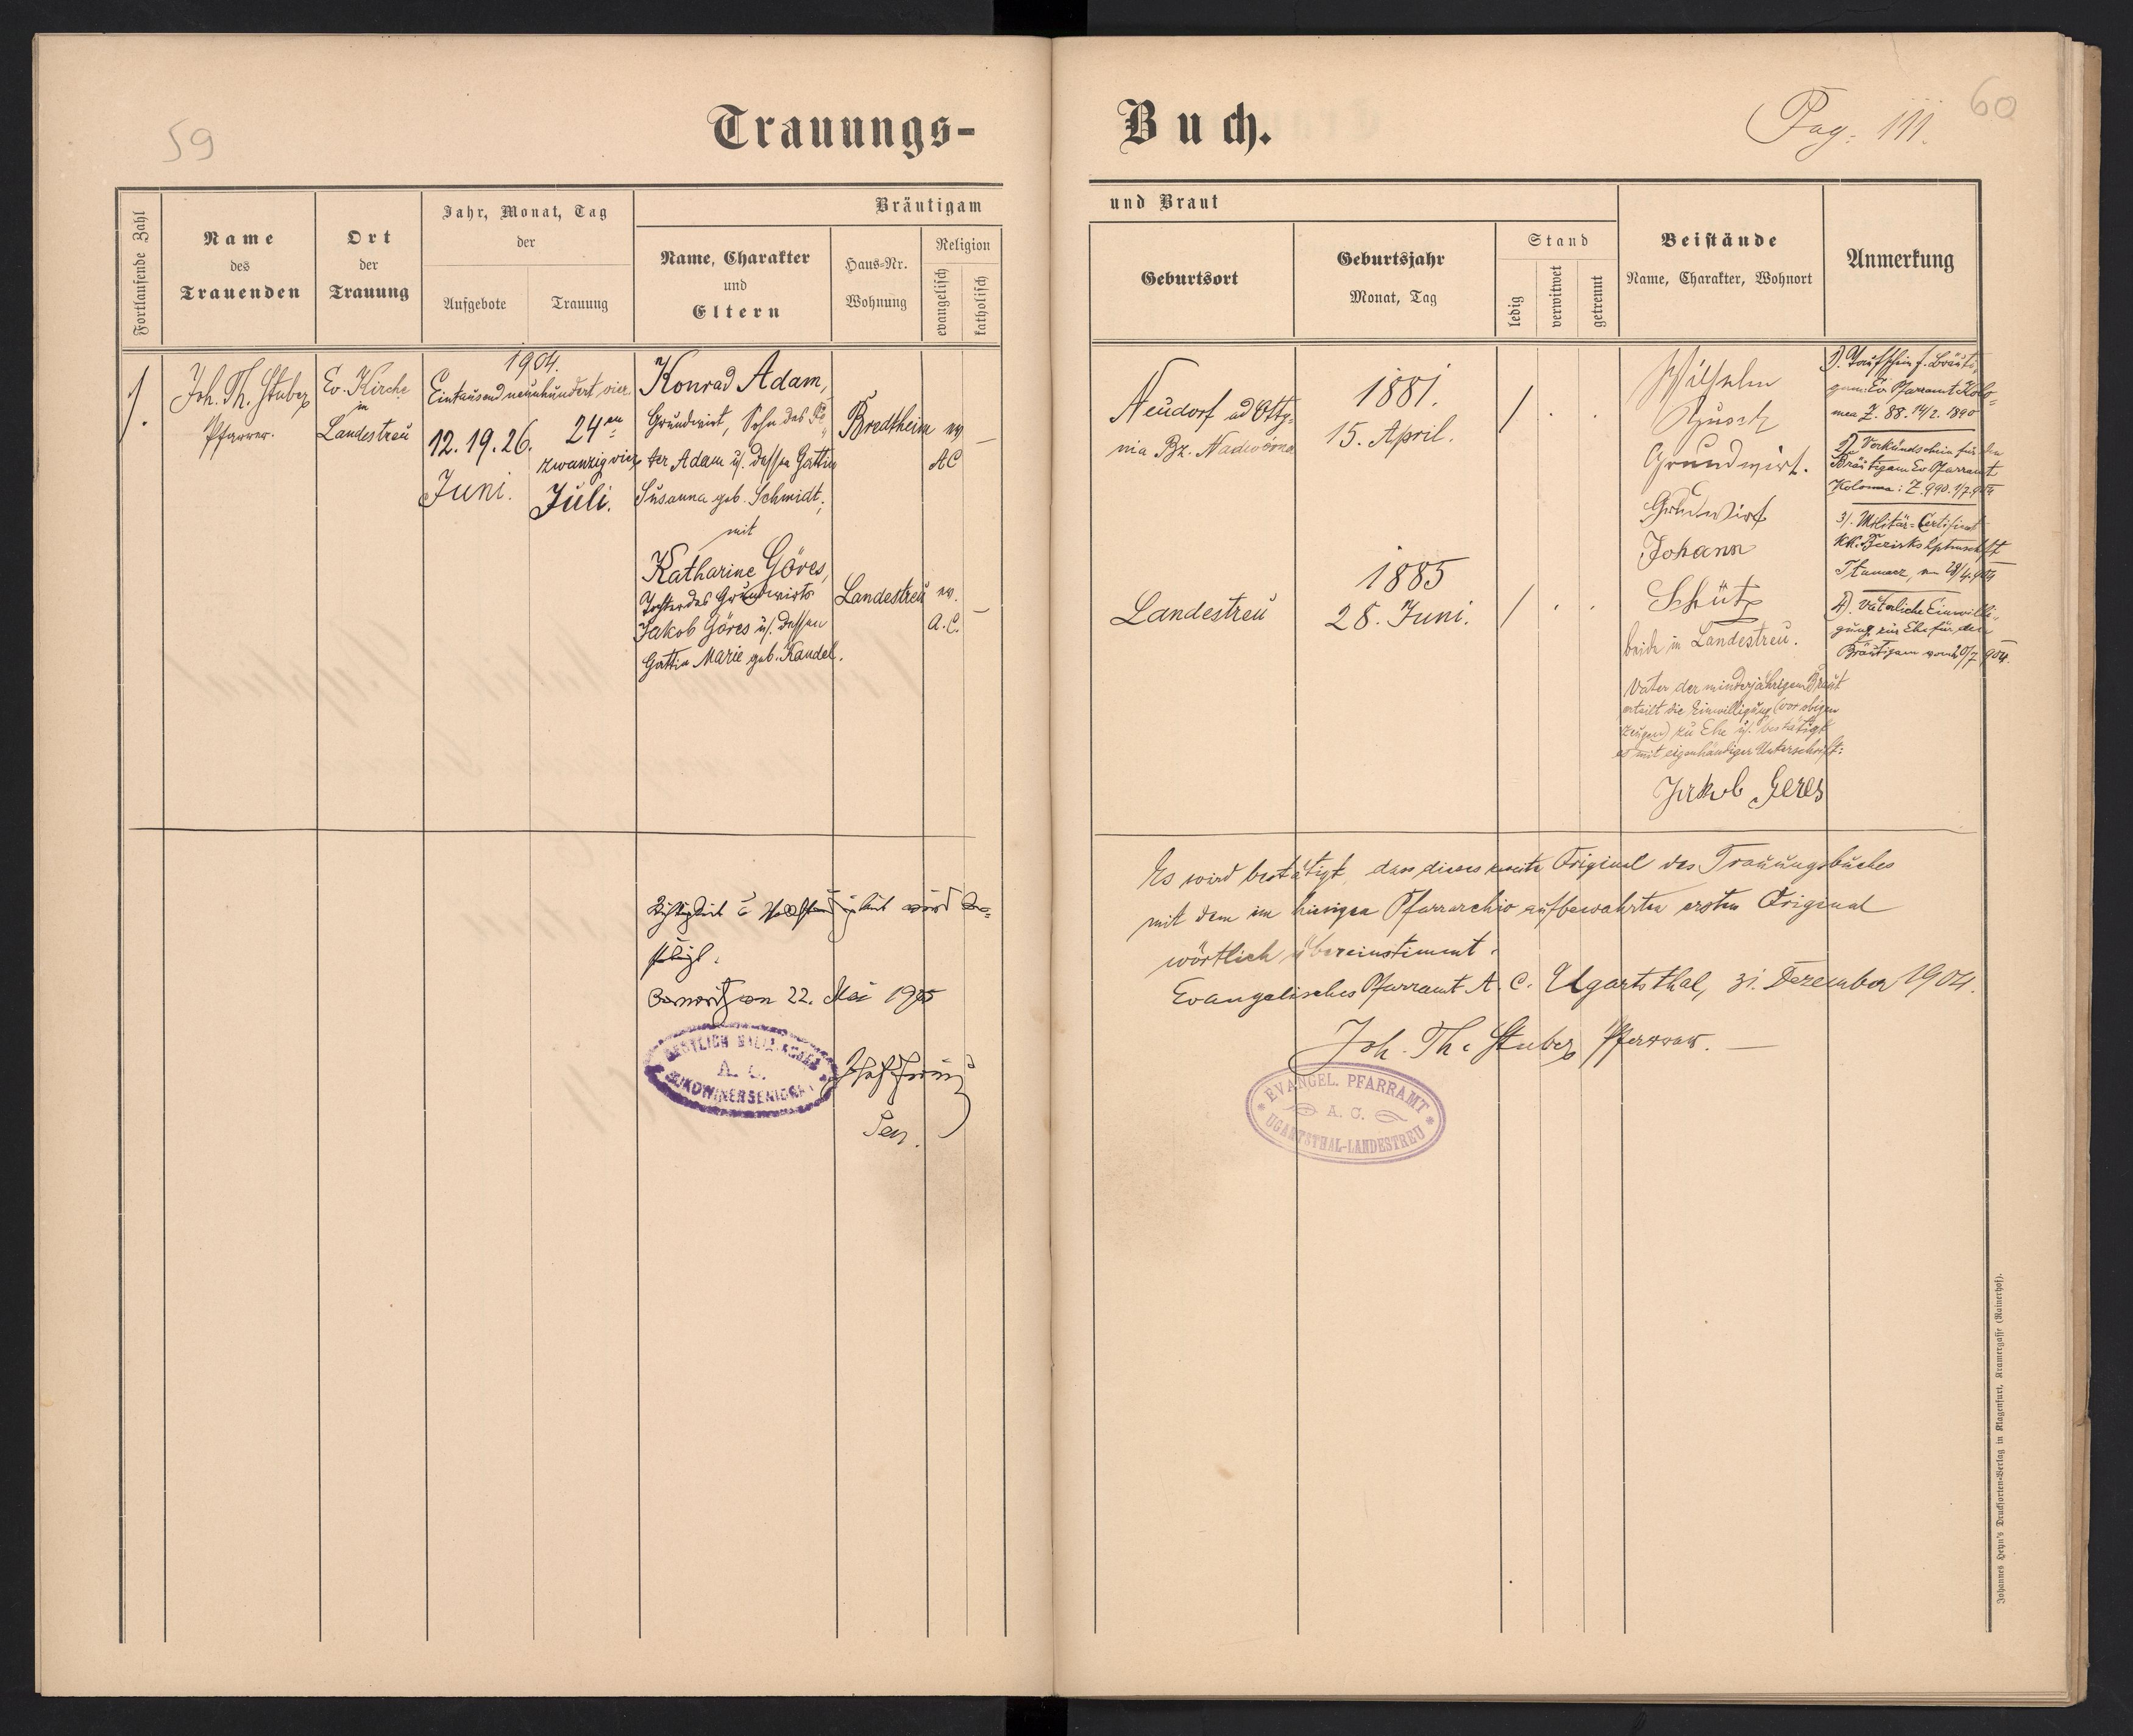 59
Trauungs-
Buch.
Pag: 111.
60
Fortlaufende Zahl
Name
des
Trauenden
Ort
der
Trauung
Jahr, Monat, Tag
der
Aufgebote
Trauung
Bräutigam
Name, Charakter
und
Eltern
Haus-Nr.
Wohnung
Religion
evangelisch
katholisch
und Braut
Geburtsort
Geburtsjahr
Monat, Tag
Stand
ledig
verwitwet
getrennt
Beistände
Name, Charakter, Wohnort
Anmerkung
1.
Joh. Th. Stuber
Pfarrer.
Ev. Kirche
in
Landestreu
1904.
Eintausend neunhundert vier.
12. 19. 26.
Juni.
24en
zwanzig vier
Juli.
Konrad Adam,
Grundwirt, Sohn des Pe
ter Adam u. dessen Gattin
Susanna geb. Schmidt;
mit
Katharine Göres,
Tochter des Grundwirts
Jakob Göres u. dessen
Gattin Marie geb. Kandel.
Bredtheim
ev
AC
Landestreu
ev.
A.C.
Neudorf ad Otty-
nia Bz. Nadwórna
1881.
15. April.
/ . .
Landestreu
1885
28. Juni.
/ . .
Wilhelm
Grundwirt.
Grundwirt
Johann
Schütz
beide in Landestreu.
Vater der minderjährigen Braut
erteilt die Einwilligung (vor obigen
Zeugen) zu Ehe u. bestätigt
es mit eigenhändiger Unterschrift:
Jakob Geres
1). Taufschein f. Bräuti-
gam: Ev. Pfarramt Kolo-
mea Z. 88. 14/2. 1890
2). Verkündschein für den
Bräutigam Ev. Pfarramt
Kolomea: Z. 990. 1/7. 904
3). Militär-Certificat
kk. Bezirkshptmschft
Tlumacz, vom 28/4. 904
4). Väterliche Einwilli-
gung zur Ehe für den
Bräutigam vom 20/7 904.
Richtigkeit u Vollständigkeit wird be-
stätigt.
am 22. Mai 1905
OESTLICH GALIZ. UND
A. C.
BUKOWINER SENIORAT
Sen.
Es wird bestätigt, dass dieses zweite Original des Trauungsbuches
mit dem im hiesigen Pfarrarchiv aufbewahrten ersten Original
wörtlich übereinstimmt.
Evangelisches Pfarramt A. C. Ugartsthal, 31. Dezember 1904.
Joh. Th. Stuber Pfarrer.
EVANGEL. PFARRAMT
A. C.
UGARTSTHAL-LANDESTREU
Johannes Heyn's Drucksorten-Verlag in Klagenfurt, Kramergasse (Rainerhof).